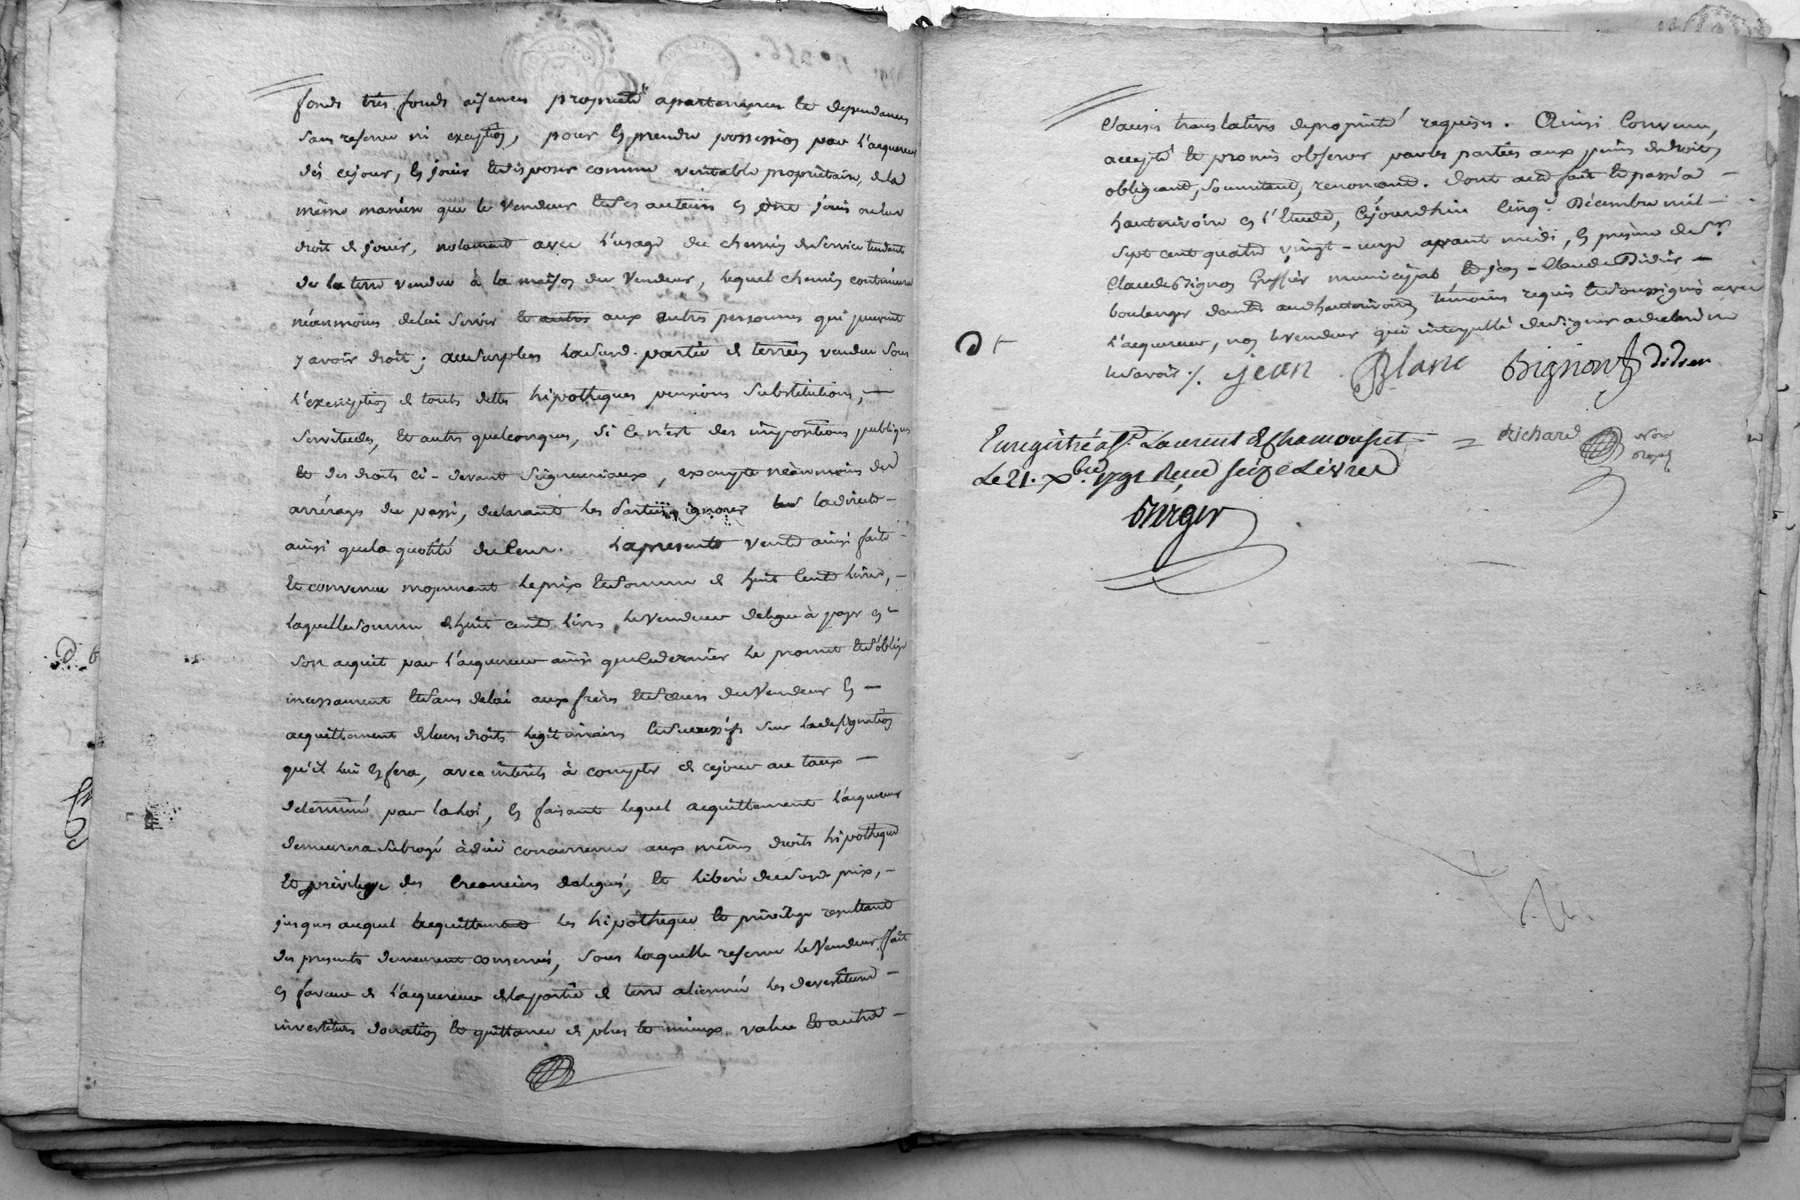 fonds très fonds aisances propriété apartenances et dependances
sans reserve ni exception, pour en prendre possession par l'acquereur
dès cejour, en jouir et disposer comme veritable proprietaire, de la
même maniere que le vendeur et ses auteurs en ont joui ou eu
droit de jouir, notament avec l'usage du chemin de service tendant
de la terre vendue à la maison du vendeur, lequel chemin continuera
néanmoins de lui servir et autres aux autres personnes qui peuvent
y avoir droit; au surplus lasusd. partie de terre vendue sous
l'exemption de touts dettes hipotheques pensions substitutions, —
servitudes, et autres quelconques, si ce n'est des impositions publiques
et des droits ci-devant seigneuriaux, exempte néanmoins des
arrérages du passé, declarant les parties ignorer la directe —
ainsi que la quotité du cens. La presente vente ainsi faite
et convenue moyenant le prix et somme de huit cent livres, —
laquelle somme de huit cent livres, le vendeur delegue à payer en
son acquit par l'acquereur ainsi que ce dernier le promet et s'oblige
incessament et sans delai aux freres et sœurs du vendeur en —
acquittement de leurs droits legitimaires et successifs sur la designation
qu'il lui en fera, avec interets à compter de cejour au taux —
determiné par la loi, en faisant lequel acquittement l'acquereur
demeurera subrogé à due concurrence aux mêmes droits hipotheque
et privilege des creanciers delegués, et liberé dudit prix, —
jusques auquel acquittement les hipotheque et privilege resultant
des presentes demeurent conservés, sous laquelle reserve le vendeur fait
en faveur de l'acquereur de la partie de terre alienée les devestiture —
investiture donation et quittance de plus et mieux value et autre —
clauses translatives de propriété requises. Ainsi convenu,
accepté et promis observer par les parties aux peines de droit en
obligeant, soumetant, renonceant. Dont acte fait et passé a —
hauterivoire en l'etude, cejourdhui cinq Décembre mil —
sept cent quatre vingt-onze avant midi, en presence de Sr.
Claude Bignon Greffier municipal et jean-Claude Didier —
boulanger demt. aud hauterivoire témoins requis et soussignés avec
l'acquereur, non le vendeur qui interpellé de signer a declaré ne
le savoir ./. jean Blanc Bignon didier
Enregistré a St. Laurent de Chamousset = Richard Nore
Le 21. Xbre 1791 Reçu seize Livres royal